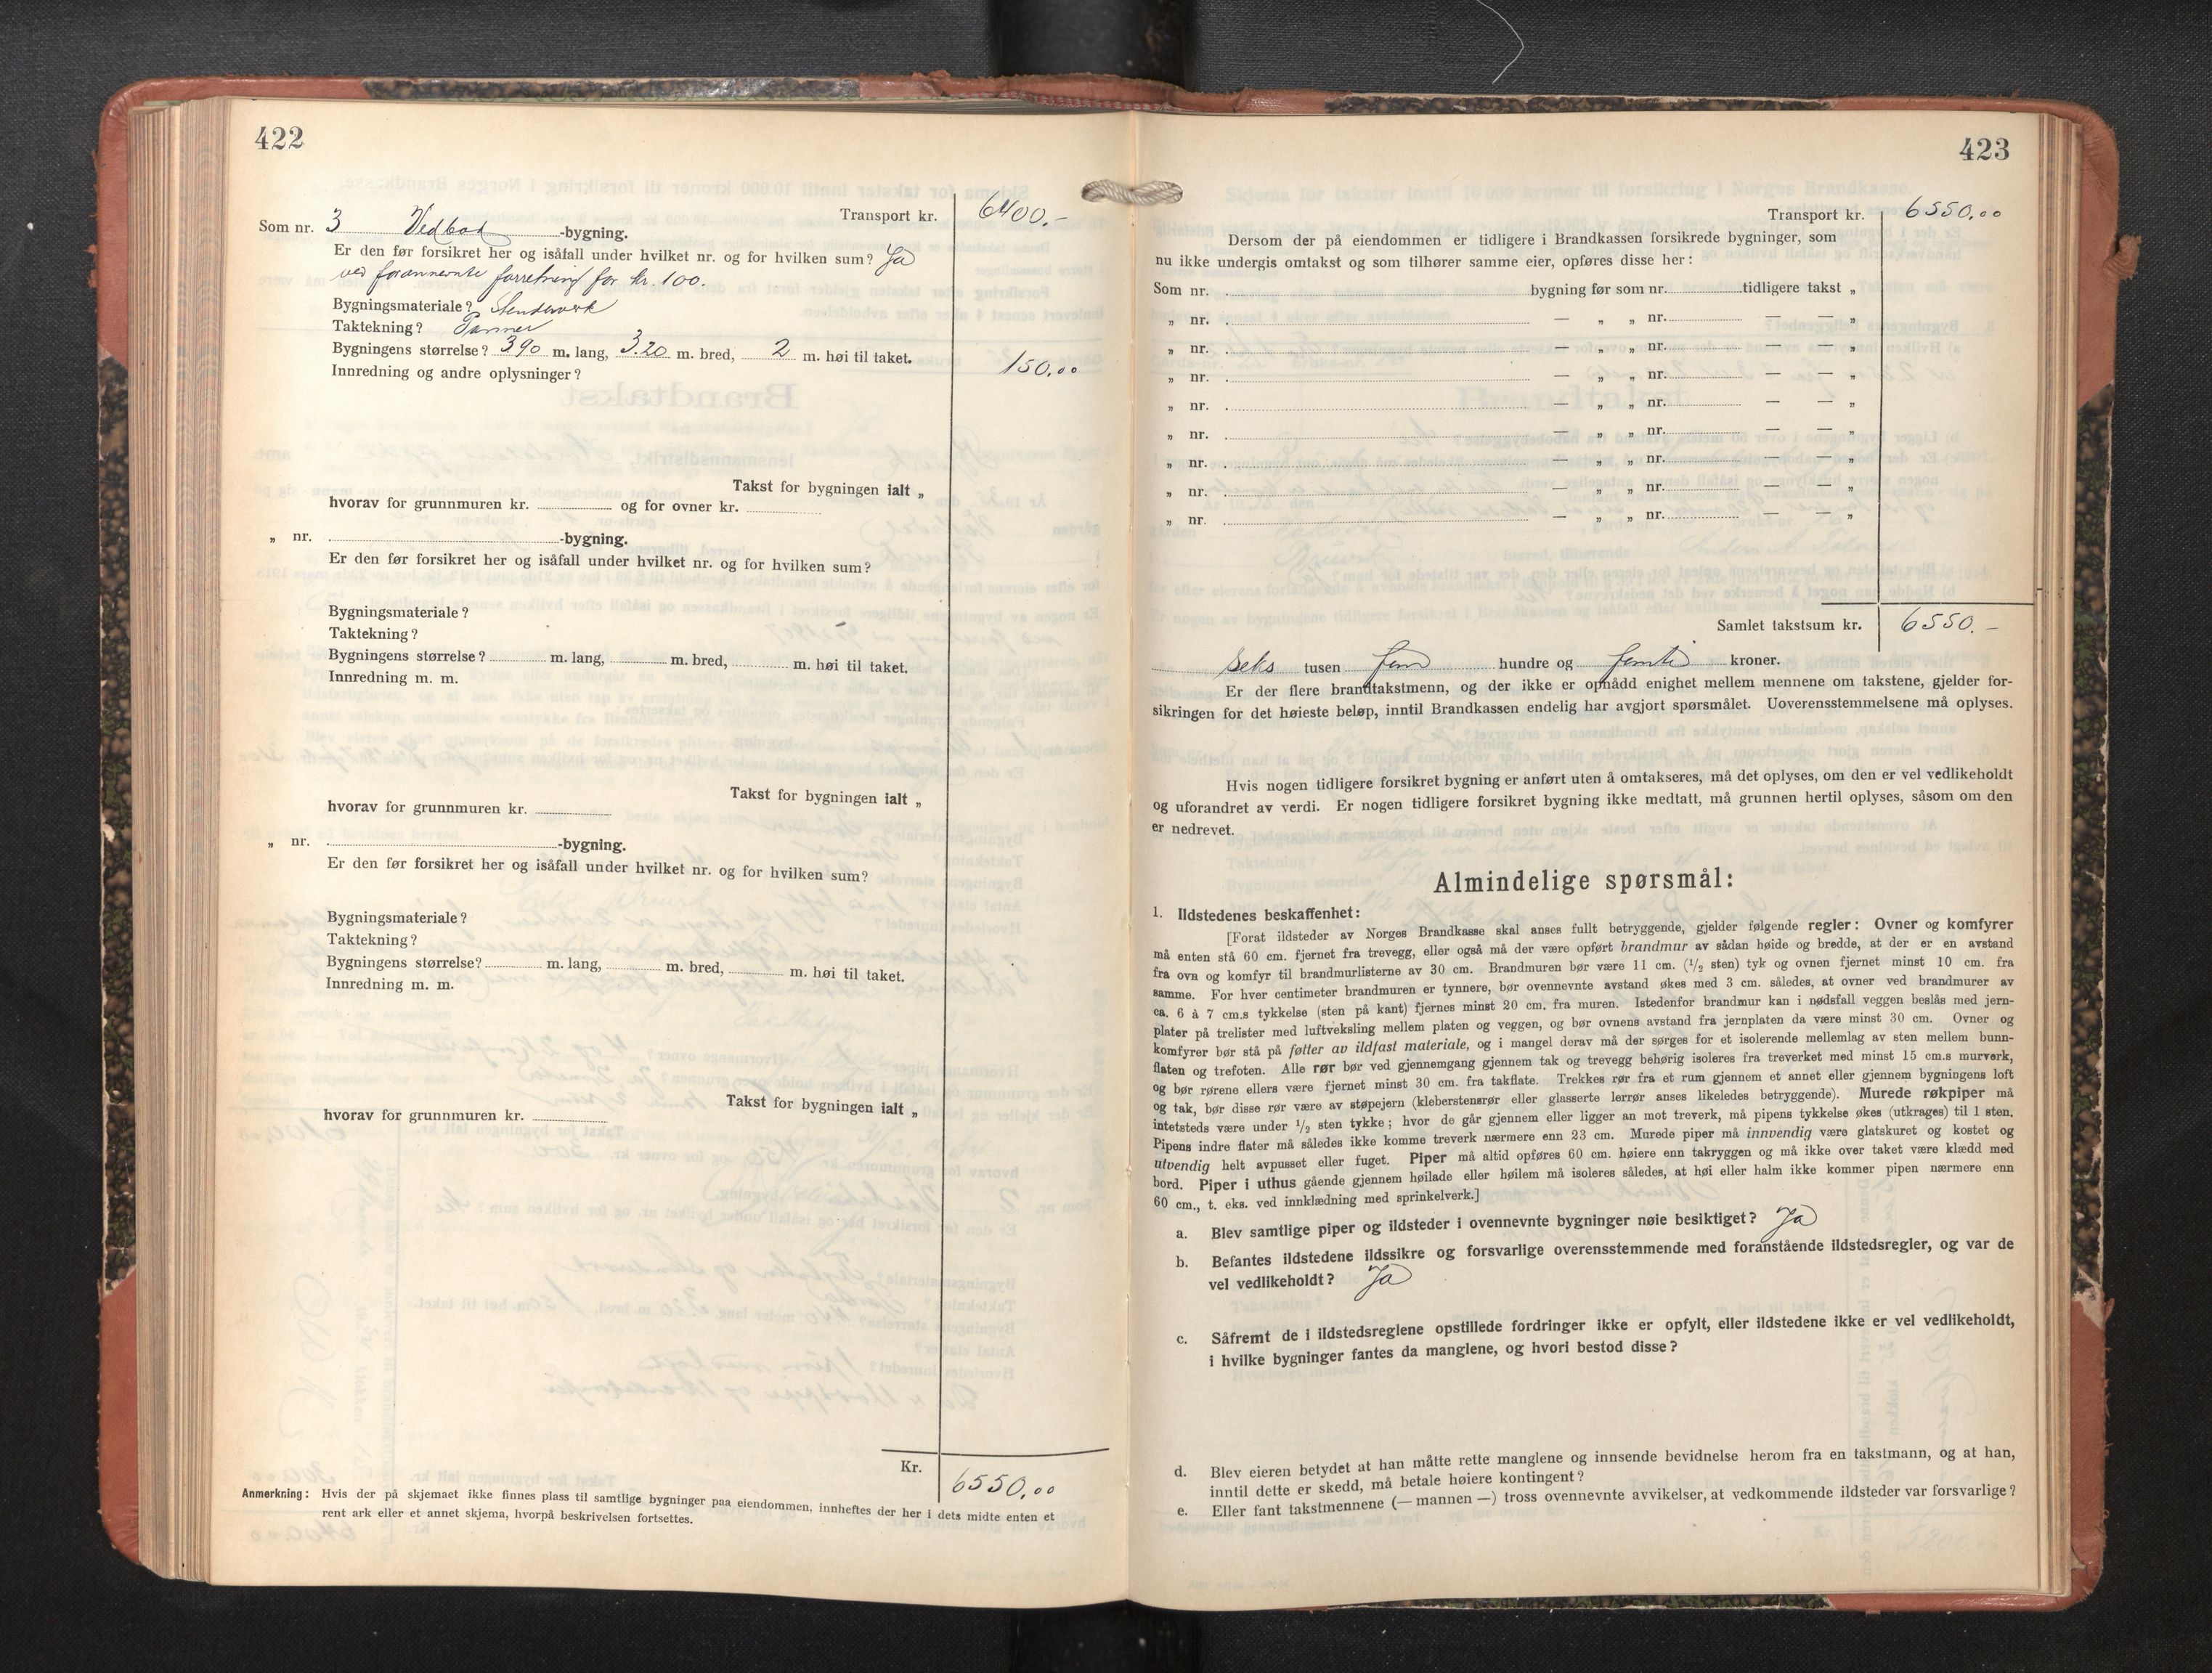 422
Transport kr. 6400.-
Som nr. 3 Vedbod -bygning.
Er den før forsikret her og isåfall under hvilket nr. og for hvilken sum? Ja
ved forannevnte forretning for kr. 100.
Bygningsmateriale? Stenderverk
Taktekning? Panner
Bygningens størrelse? 3.90 m. lang, 3.20 m. bred, 2 m. høi til taket.
Innredning og andre oplysninger? 150.00
Takst for bygningen ialt „
hvorav for grunnmuren kr. og for ovner kr.
„ nr. -bygning.
Er den før forsikret her og isåfall under hvilket nr. og for hvilken sum?
Bygningsmateriale?
Taktekning?
Bygningens størrelse? m. lang, m. bred, m. høi til taket.
Innredning m. m.
Takst for bygningen ialt „
hvorav for grunnmuren kr.
„ nr. -bygning.
Er den før forsikret her og isåfall under hvilket nr. og for hvilken sum?
Bygningsmateriale?
Taktekning?
Bygningens størrelse? m. lang, m. bred, m. høi til taket.
Innredning m. m.
Takst for bygningen ialt „
hvorav for grunnmuren kr.
Kr. 6550.00
Anmerkning: Hvis der på skjemaet ikke finnes plass til samtlige bygninger paa eiendommen, innheftes der her i dets midte enten et
rent ark eller et annet skjema, hvorpå beskrivelsen fortsettes.
423
Transport kr. 6550.00
Dersom der på eiendommen er tidligere i Brandkassen forsikrede bygninger, som
nu ikke undergis omtakst og som tilhører samme eier, opføres disse her:
Som nr. bygning før som nr. tidligere takst „
„ nr. — „ „ nr. — — „
„ nr. — „ „ nr. — — „
„ nr. — „ „ nr. — — „
„ nr. — „ „ nr. — — „
„ nr. — „ „ nr. — — „
„ nr. — „ „ nr. — — „
„ nr. — „ „ nr. — — „
„ nr. — „ „ nr. — — „
Samlet takstsum kr. 6550.-
seks tusen fem hundre og femti kroner.
Er der flere brandtakstmenn, og der ikke er opnådd enighet mellem mennene om takstene, gjelder for-
sikringen for det høieste beløp, inntil Brandkassen endelig har avgjort spørsmålet. Uoverensstemmelsene må oplyses.
Hvis nogen tidligere forsikret bygning er anført uten å omtakseres, må det oplyses, om den er vel vedlikeholdt
og uforandret av verdi. Er nogen tidligere forsikret bygning ikke medtatt, må grunnen hertil oplyses, såsom om den
er nedrevet.
Almindelige spørsmål:
1. Ildstedenes beskaffenhet:
[Forat ildsteder av Norges Brandkasse skal anses fullt betryggende, gjelder følgende regler: Ovner og komfyrer
må enten stå 60 cm. fjernet fra trevegg, eller også må der være opført brandmur av sådan høide og bredde, at der er en avstand
fra ovn og komfyr til brandmurlisterne av 30 cm. Brandmuren bør være 11 cm. (1/2 sten) tyk og ovnen fjernet minst 10 cm. fra
samme. For hver centimeter brandmuren er tynnere, bør ovennevnte avstand økes med 3 cm. således, at ovner ved brandmurer av
ca. 6 à 7 cm.s tykkelse (sten på kant) fjernes minst 20 cm. fra muren. Istedenfor brandmur kan i nødsfall veggen beslås med jern-
plater på trelister med luftveksling mellem platen og veggen, og bør ovnens avstand fra jernplaten da være minst 30 cm. Ovner og
komfyrer bør stå på føtter av ildfast materiale, og i mangel derav må der sørges for et isolerende mellemlag av sten mellem bunn-
flaten og trefoten. Alle rør bør ved gjennemgang gjennem tak og trevegg behørig isoleres fra treverket med minst 15 cm.s murverk,
og bør rørene ellers være fjernet minst 30 cm. fra takflate. Trekkes rør fra et rum gjennem et annet eller gjennem bygningens loft
og tak, bør disse rør være av støpejern (kleberstensrør eller glasserte lerrør anses likeledes betryggende). Murede røkpiper må
intetsteds være under 1/2 sten tykke; hvor de går gjennem eller ligger an mot treverk, må pipens tykkelse økes (utkrages) til 1 sten.
Pipens indre flater må således ikke komme treverk nærmere enn 23 cm. Murede piper må innvendig være glatskuret og kostet og
utvendig helt avpusset eller fuget. Piper må altid opføres 60 cm. høiere enn takryggen og må ikke over taket være klædd med
bord. Piper i uthus gående gjennem høilade eller høilem må isoleres således, at høi eller halm ikke kommer pipen nærmere enn
60 cm., t. eks. ved innklædning med sprinkelverk.]
a. Blev samtlige piper og ildsteder i ovennevnte bygninger nøie besiktiget? Ja
b. Befantes ildstedene ildssikre og forsvarlige overensstemmende med foranstående ildstedsregler, og var de
vel vedlikeholdt? Ja
c. Såfremt de i ildstedsreglene opstillede fordringer ikke er opfylt, eller ildstedene ikke er vel vedlikeholdt,
i hvilke bygninger fantes da manglene, og hvori bestod disse?
d. Blev eieren betydet at han måtte rette manglene og innsende bevidnelse herom fra en takstmann, og at han,
inntil dette er skedd, må betale høiere kontingent?
e. Eller fant takstmennene (— mannen —) tross ovennevnte avvikelser, at vedkommende ildsteder var forsvarlige?